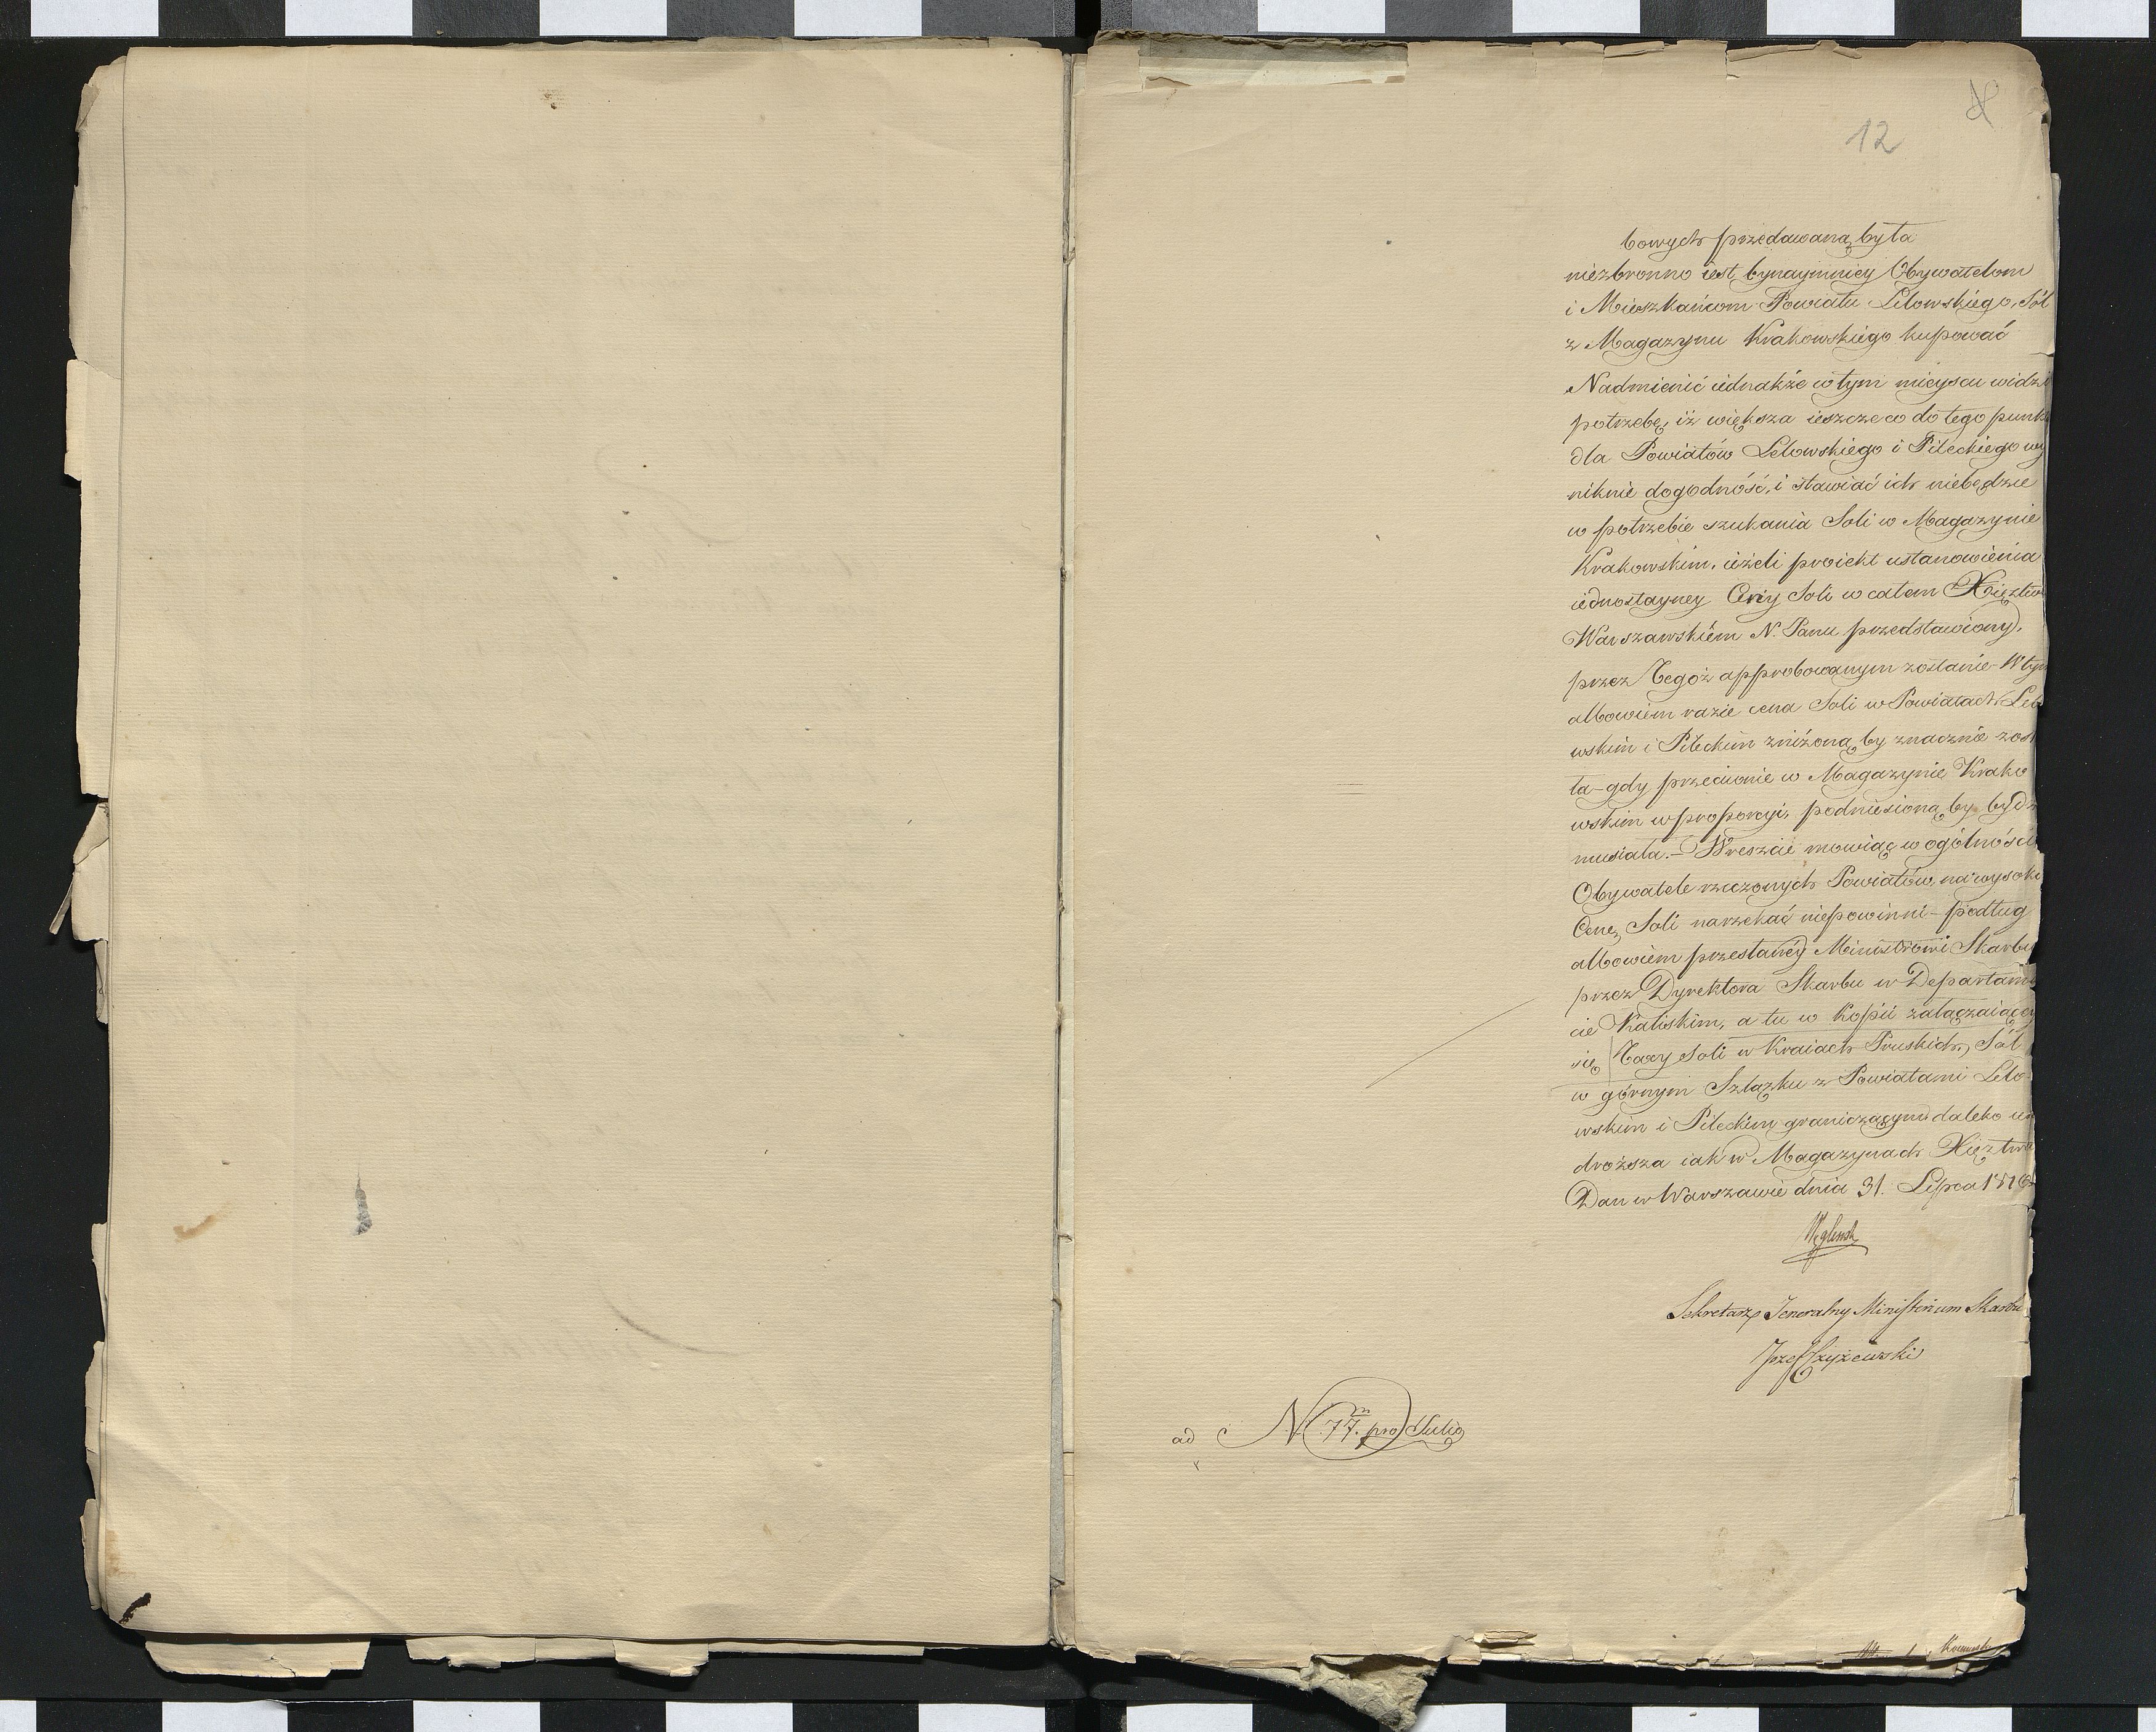 12
bowych przedawaną była
niezbronno iest bynaymniey Obywatelom
i Mieszkańcom Powiatu Lelowskiego, Sól
z Magazynu Krakowskiego kupować
Nadmienić iednakże w tym mieyscu widzi
potrzebę, iż większa ieszcze co do tego punk
dla Powiatów Lelowskiego i Pileckiego wy
niknie dogodność, i stawiać ich niebędzie
w potrzebie szukania Soli w Magazynie
Krakowskim, ieżeli proiekt ustanowienia
iednostayney Ceny Soli w całem Xięztwie
Warszawskiem N. Panu przedstawiony,
przez Tegoż approbowanym zostanie – W tym
albowiem razie cena Soli w Powiatach Lelo
wskim i Pileckim zniżoną by znacznie zost
ła – gdy przeciwnie w Magazynie Krako
wskim w proporcyi, podniesioną by bydź
musiała. – Wreszcie mowiąc w ogólności
Obywatele rzeczonych Powiatów, na wysoką
Cenę Soli narzekać niepowinni – podług
albowiem przesłanéy Ministrowi Skarbu
przez Dyrektora Skarbu w Departamen
cie Kaliskim, a tu w kopii załączaiącey
się Taxy Soli w Kraiach Pruskich, Sól
w górnym Szląsku z Powiatami Lelo
wskim i Pileckim graniczącym daleko iest
droższa iak w Magazynach Xięztwa
Dan w Warszawie dnia 31. Lipca 1810
Węgleński
Sekretarz Jeneralny Ministerium Skarbu
Józef Czyżewski
ad N 77. m pro Julio